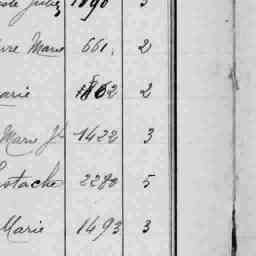 1890 3
Marie 661, 2
arie 1862 2
Marie Jh 1422 3
ustache 2280 5
Marie 1493 3